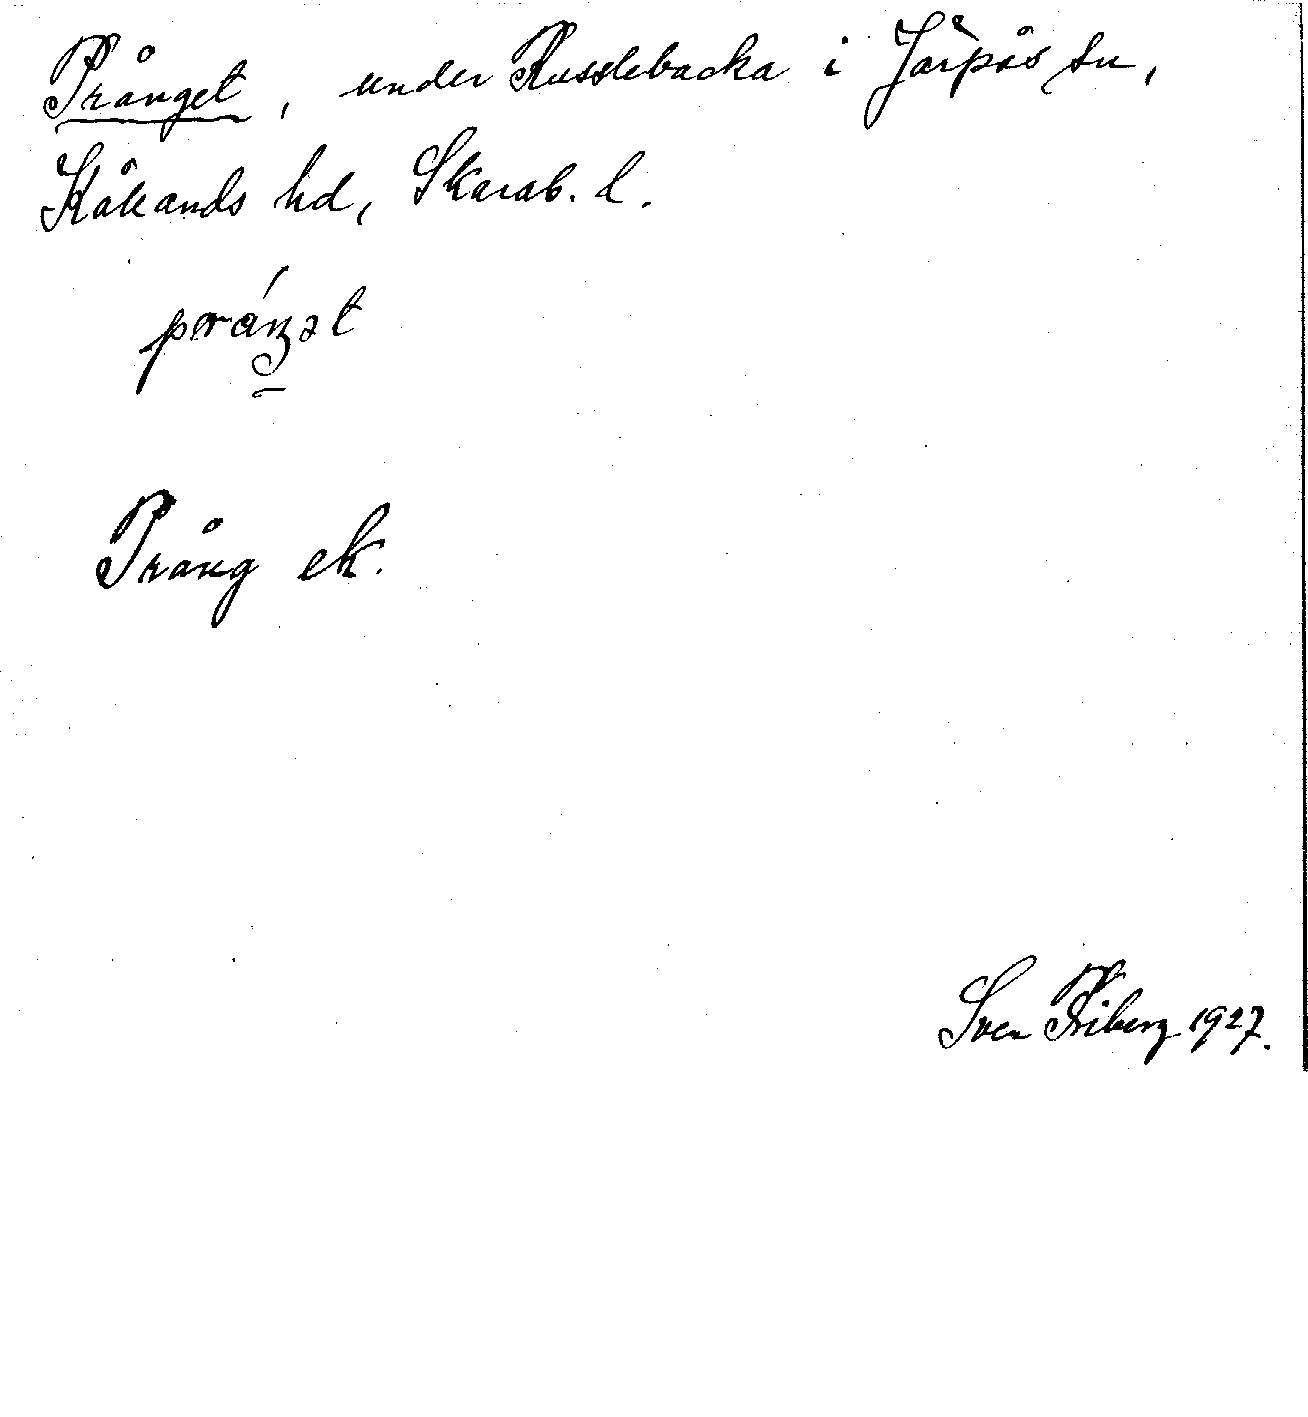 Prånget, under Russlebacka i Järpås sn,
Kåkands hd, Skarab. l.
práŋət
Prång ek.
Sven Friberg 1927.